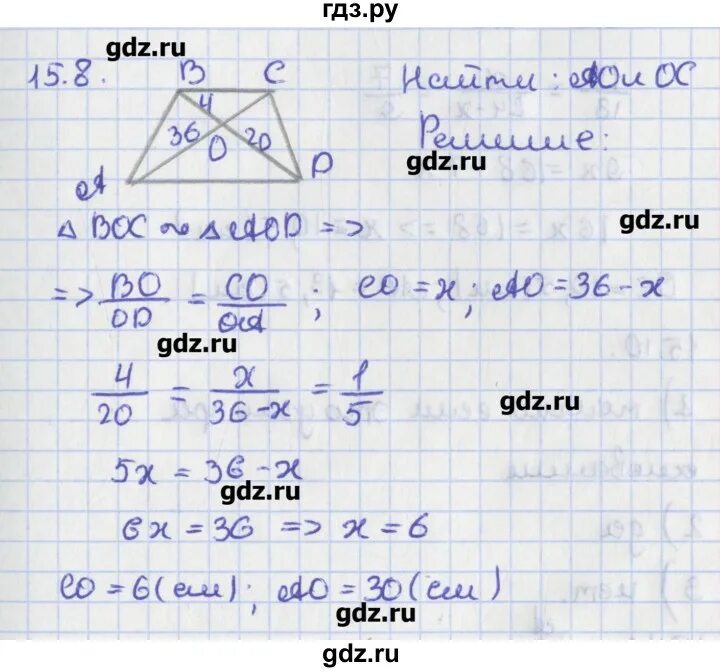 гдз.ру
gdz.ru
15.8.
B C
4
36 O 20
A D
Найти: AO и OC
Решение:
gdz.ru
gdz.ru
△ BOC ∾ △ AOD =>
=> BO/OD = CO/OA ; CO = x; AO = 36 - x
gdz.ru
4/20 = x/36-x = 1/5
gdz.ru
5x = 36 - x
gdz.ru
6x = 36 => x = 6
CO = 6 (см); AO = 30 (см)
gdz.ru
gdz.ru